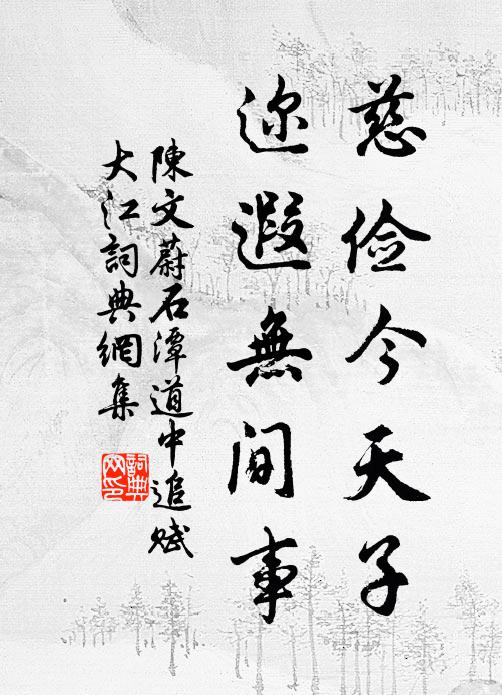 慈俭今天子
迩遐無间事
陳文蔚石潭道中追赋
大江詞典網集
詞典网印